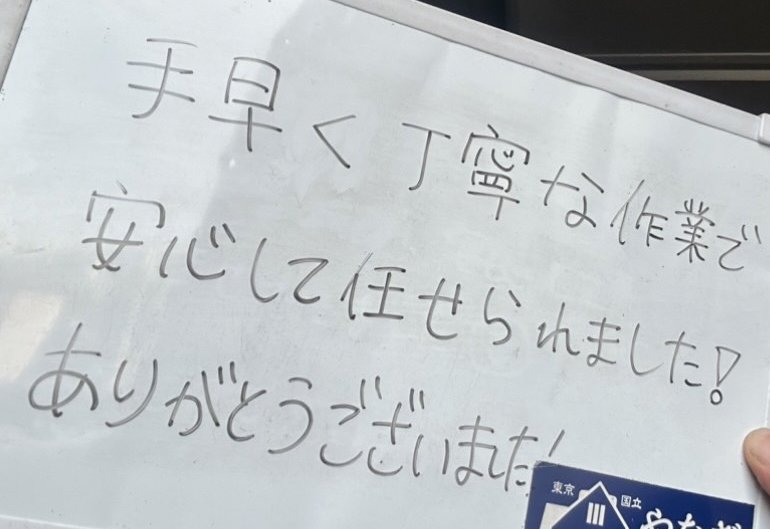 手早く丁寧な作業で
安心して任せられました!
ありがとうございました!
東京 国立